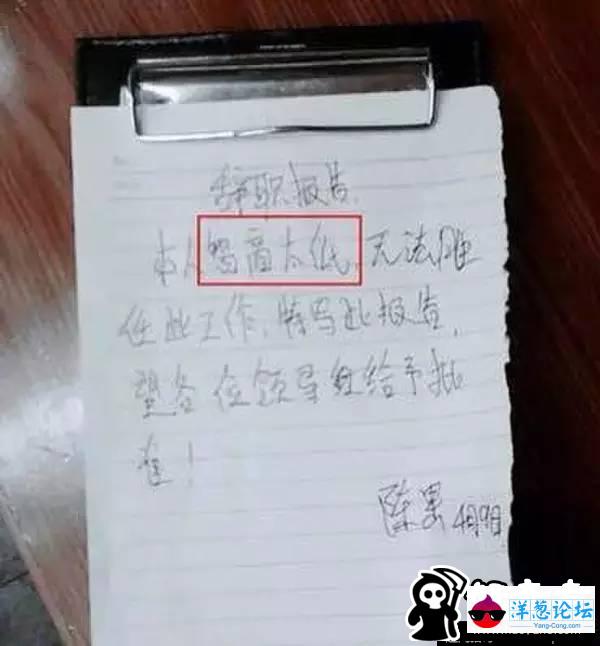 辞职报告
本人智商太低,无法胜
任此工作,特写此报告,
望各位领导组给予批
准!
陈 4月9日
洋葱论坛
Yang-Cong.com